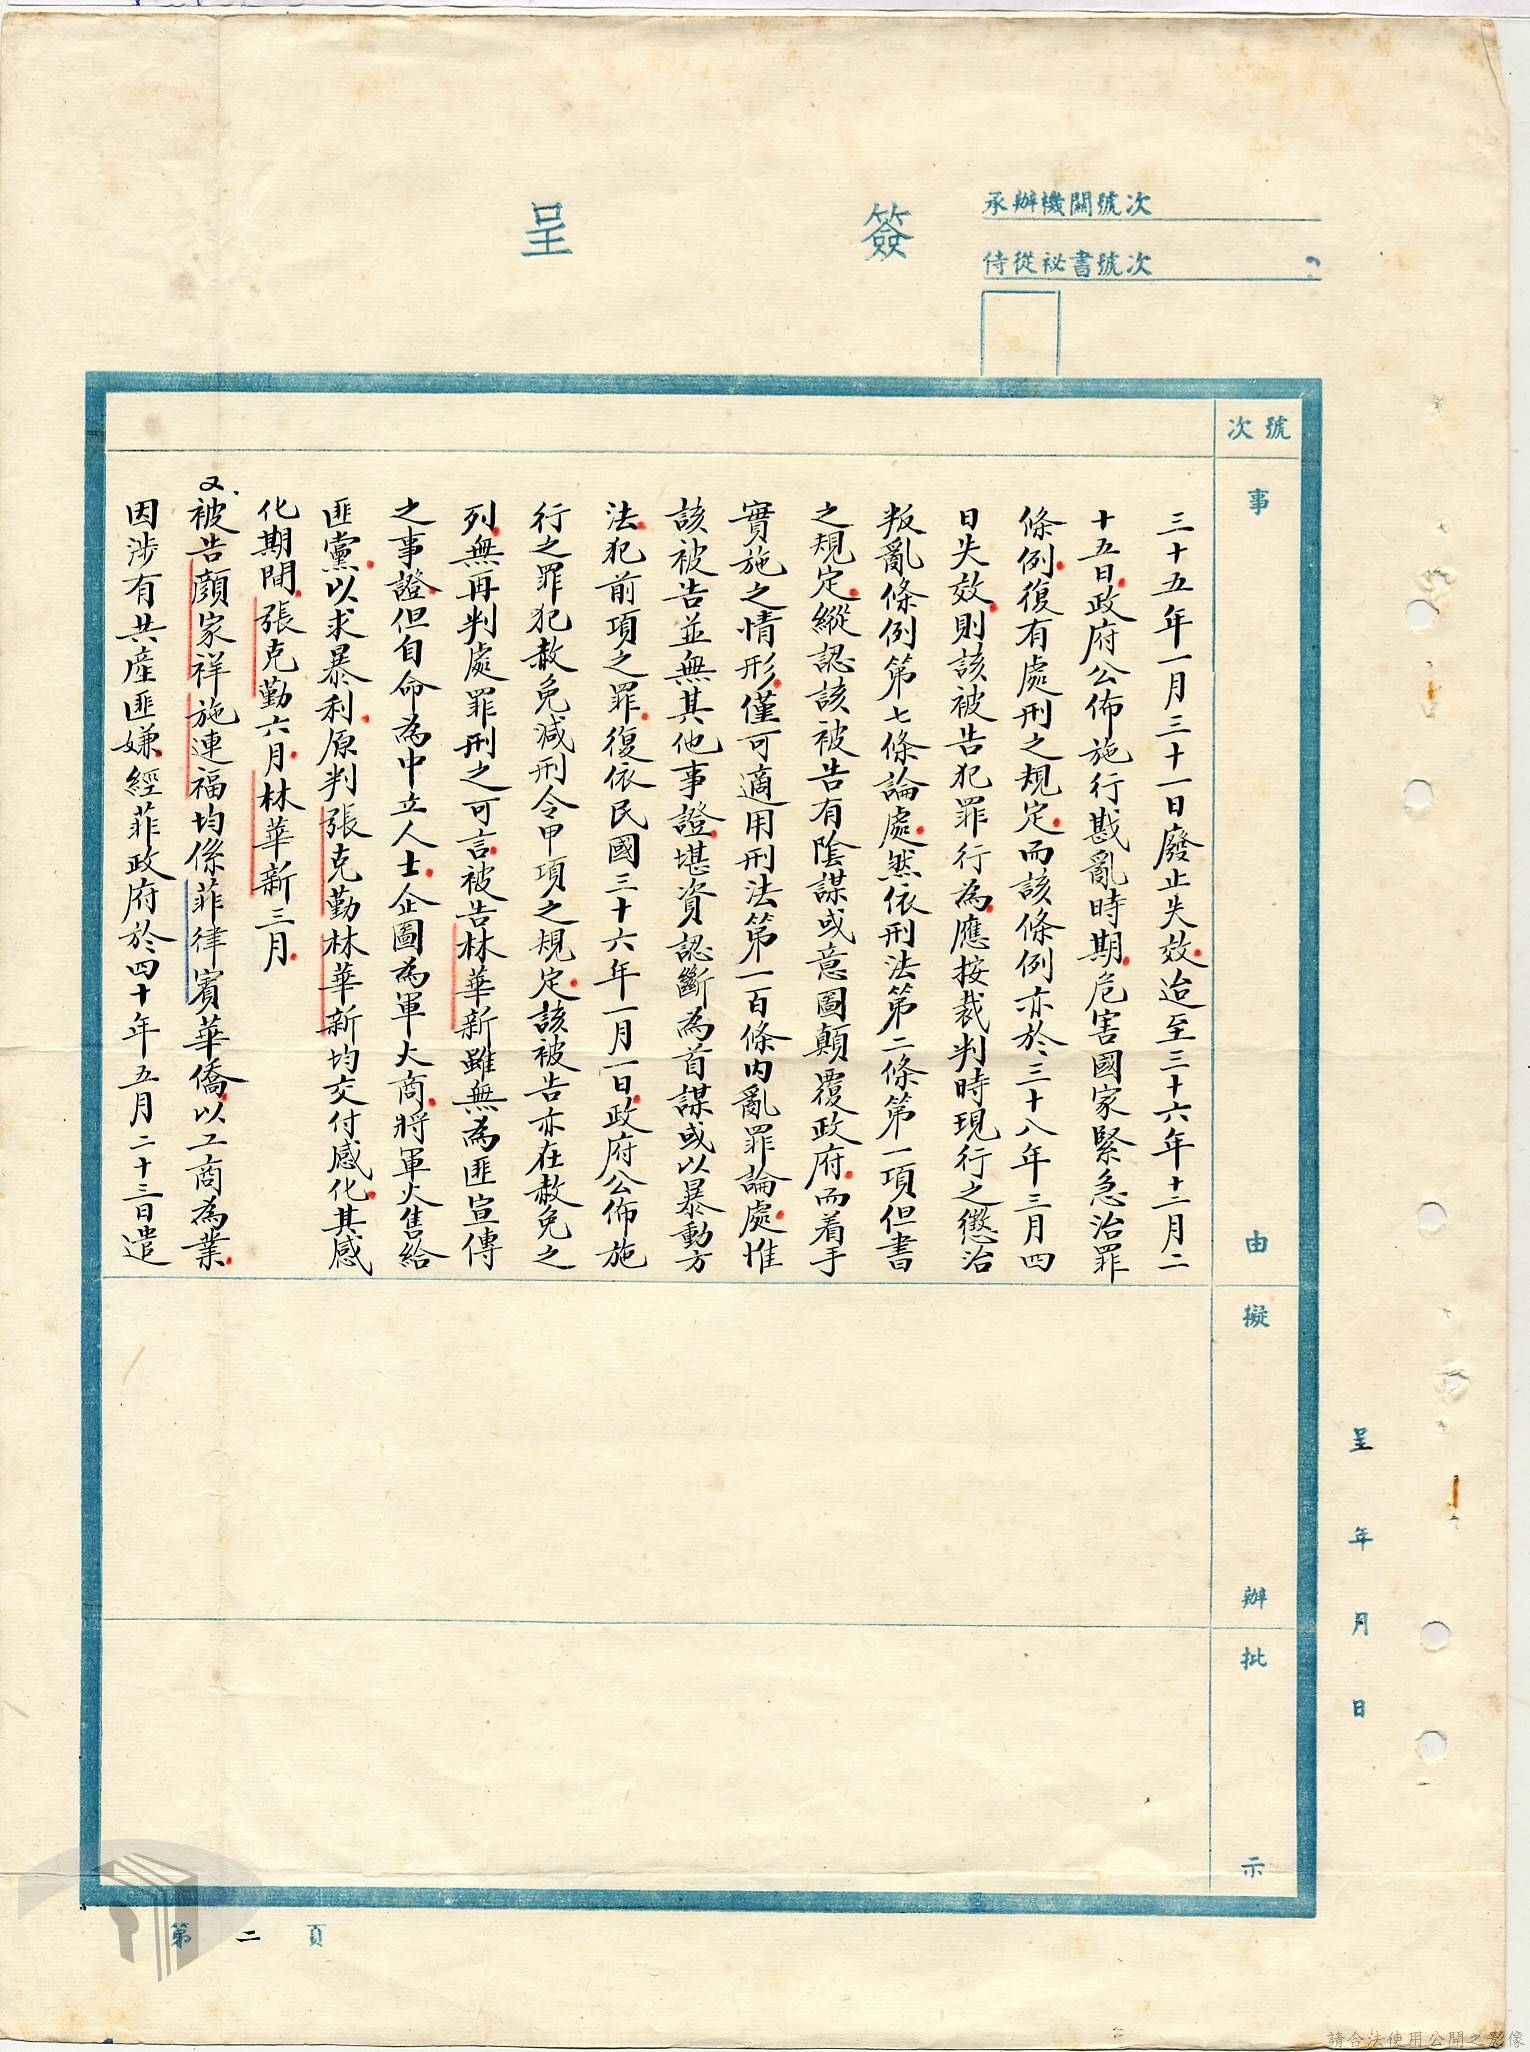 承辦機關號次
侍從祕書號次
簽呈
號次
事由
擬辦
批示
三十五年一月三十一日廢止失效迨至三十六年十二月二
十五日政府公佈施行戡亂時期危害國家緊急治罪
條例復有處刑之規定而該條例亦於三十八年三月四
日失效則該被告犯罪行為應按裁判時現行之懲治
叛亂條例第七條論處然依刑法第二條第一項但書
之規定縱認該被告有陰謀或意圖顛覆政府而着手
實施之情形僅可適用刑法第一百條內亂罪論處惟
該被告並無其他事證堪資認斷為首謀或以暴動方
法犯前項之罪復依民國三十六年一月一日政府公佈施
行之罪犯赦免減刑令甲項之規定該被告亦在赦免之
列無再判處罪刑之可言被告林華新雖無為匪宣傳
之事證但自命為中立人士企圖為軍火商將軍火售給
匪黨以求暴利原判張克勤林華新均交付感化其感
化期間張克勤六月林華新三月
2、被告顏家祥施連福均係菲律賓華僑以工商為業
因涉有共產匪嫌經菲政府於四十年五月二十三日遣
呈年月日
第二頁
請合法使用公開之影像